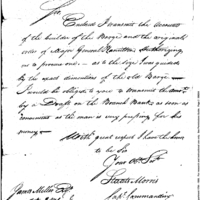 Sir,
Enclosed I transmit the account
of the builder of the Barge and the original
order of Major General Hamilton authorizing
me to procure one – as to the size I was guided
by the exact dimentions of the old Barge –
I would be obliged to you to transmit the am't
by a Draft on the Branch Bank as soon as
convenient as the man is very pressing for his
money –
With great respect I have the honor
to be Sir
Your Ob. St
Staats Morris
Cap. Commanding
James McHenry Esqr